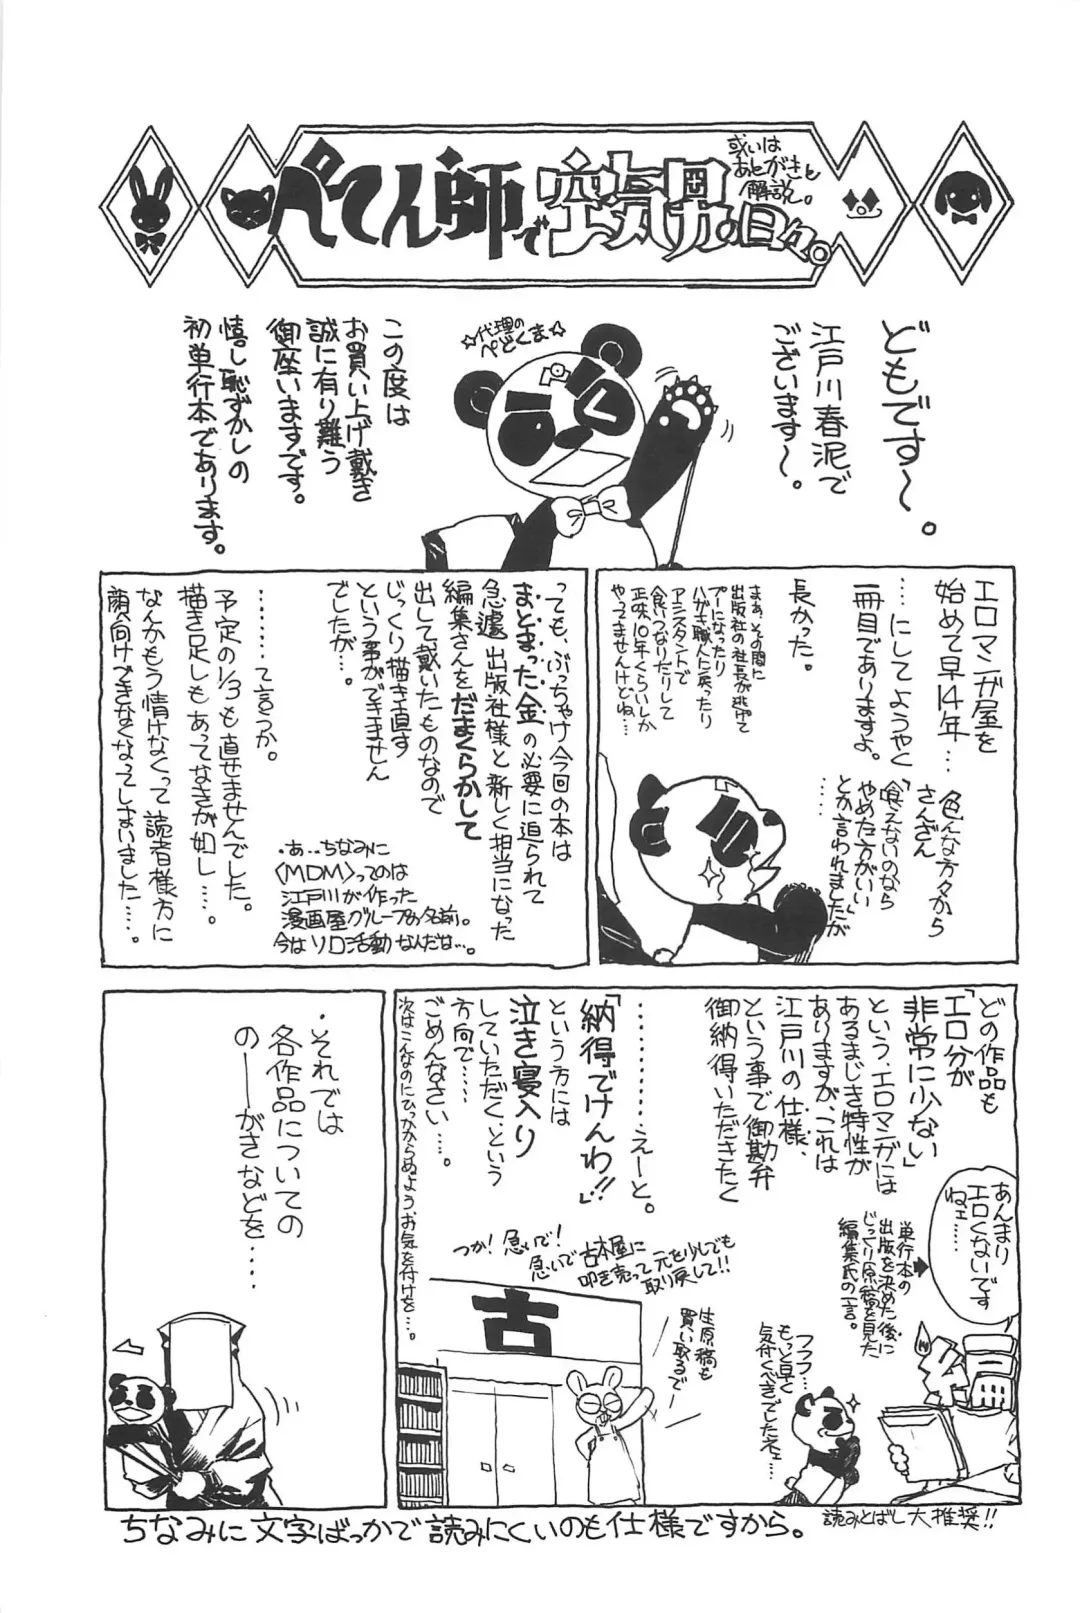 ぺてん師で空気男の日々。
或いは
あとがきと
解説。
どもです〜。
江戸川春泥で
ございます〜。
☆代理の
ぺどくま☆
この度は
お買い上げ戴き
誠に有り難う
御座いますです。
嬉し恥ずかしの
初単行本であります。
エロマンガ屋を
始めて早14年…
…にしてようやく
一冊目でありますよ。
長かった。
まぁ、その間に
出版社の社長が逃げて
プーになったり
ハガキ職人に戻ったり
アシスタントで
食いつなりだりして
正味10年くらいしか
やってませんけどね…
色んな方々から
さんざん
「食えないのなら
やめた方がいい」
とか言われましたが
っても、ぶっちゃけ今回の本は
まとまった金の必要に迫られて
急遽出版社様と新しく担当になった
編集さんをだまくらかして
出して戴いたものなので
じっくり描き直す
という事ができません
でしたが…。
………って言うか。
予定の1/3も直せませんでした。
描き足しもあってなきが如し……。
なんかもう情けなくって読者様方に
顔向けできなくなってしまいました……。
・あ…ちなみに
〈MDM〉ってのは
江戸川が作った
漫画屋グループの名前。
今はソロ活動なんだな…。
どの作品も
「エロ分が
非常に少ない」
という、エロマンガには
あるまじき特性が
ありますが、これは
江戸川の仕様、
という事で御勘弁
御納得いただきたく
………えーと。
「納得でけんわ!!」
という方には
泣き寝入り
していただく、という
方向で……
ごめんなさい……。
次はこんなのにひっかからぬようお気を付けを…。
あんまり
エロくないです
ねェ……
単行本の
出版を決めた後に
じってり原稿を見た
編集氏の一言。
フフフ…
もっと早く
気付くべきでしたネェ…
つか!急いで!
急いで古本屋に
叩き売って元を少しでも
取り戻して!!
古
生原稿も
買い取るでー
・それでは
各作品についての
のーがきなどを…
ちなみに文字ばっかで読みにくいのも仕様ですから。
読みとばし大推奨!!